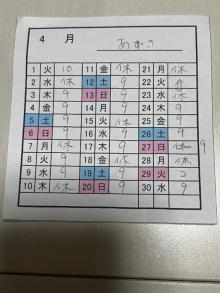 4 月 あずさ
1 火 10 11 金 休 21 月 休
2 水 休 12 土 9 22 火
3 木 9 13 日 9 23 水 休
4 金 9 14 月 9 24 木 9
5 土 9 15 火 休 25 金 9
6 日 9 16 水 9 26 土 9
7 月 休 17 木 9 27 日 9
8 火 9 18 金 休 28 月 休
9 水 9 19 土 9 29 火
10 木 休 20 日 9 30 水 9